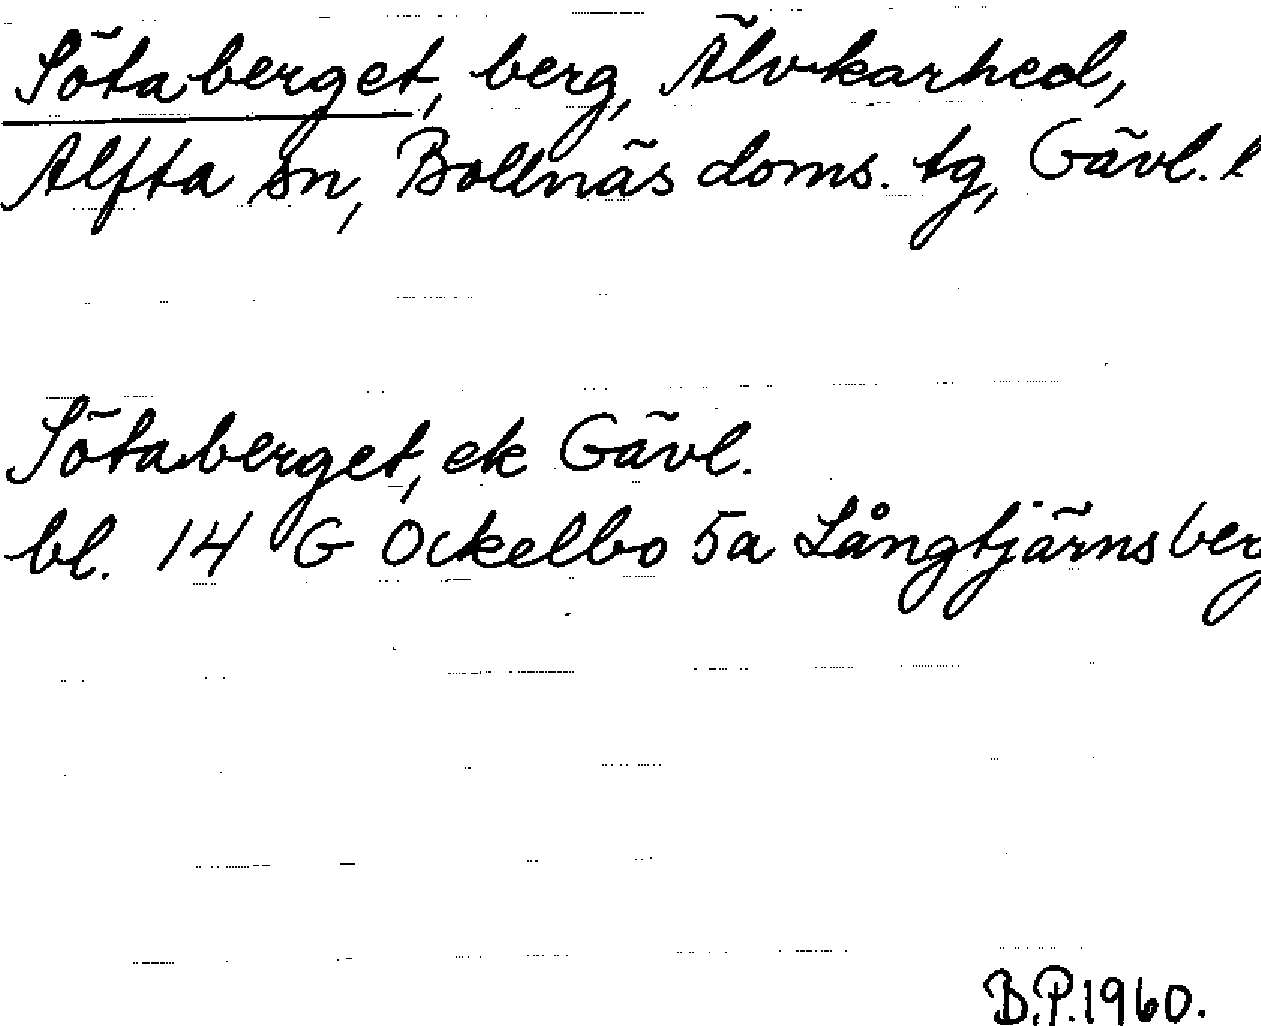 Sötaberget, berg, Älvkarhed,
Alfta sn, Bollnäs doms. tg, Gävl. l
Sötaberget, ek Gävl.
bl. 14 G Ockelbo 5a Långtjärnsberg
B.P. 1960.